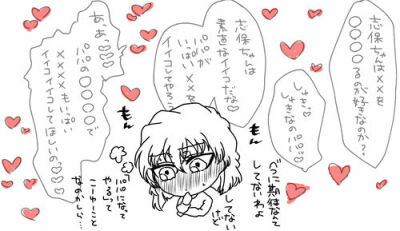 志保ちゃんは××を
〇〇〇〇るのが好きなのか？
しゅき♡
しゅきなのー!!♡
志保ちゃんは
素直なイイコだな♡
パパが
いっぱい××を
イイコイイコしてやろう♡
あっあっ♡♡
パパの〇〇〇〇で
××××もいっぱい
イイコイイコしてほしいの♡♡
もん
もん
べつに期待なんて
してないわよ
してない
けど
「パパになって
やる」って
こーゆーこと
なのかしら…